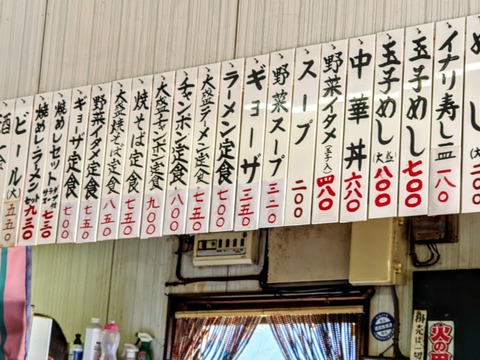 めし 二〇〇
イナリ寿し一皿 一八〇
玉子めし 七〇〇
玉子めし(大盛) 八〇〇
中華丼 六八〇
野菜イタメ(玉子入) 四八〇
スープ 二〇〇
野菜スープ 三二〇
ギョーザ 三五〇
ラーメン定食 七〇〇
大盛ラーメン定食 七五〇
チャンポン定食 八〇〇
大盛チャンポン定食 九〇〇
焼そば定食 七五〇
大盛焼そば定食 八五〇
野菜イタメ定食 八五〇
ギョーザ定食 七〇〇
焼めしセット 七三〇
焼めしラーメンセット 九三〇
ビール(大) 五五〇
酒
火の